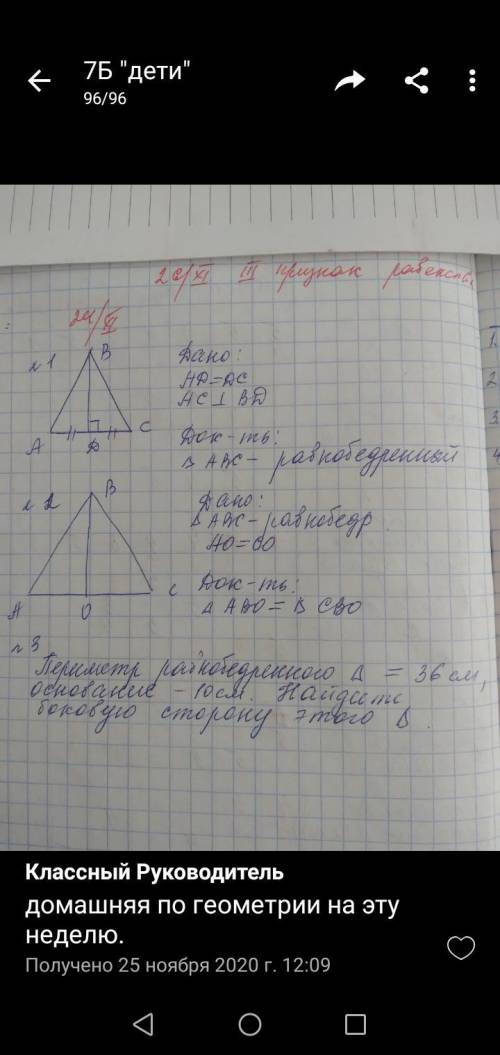 7Б "дети"
96/96
20/XI III признак равенств
24/XI
:
№1
B
A
D
C
Дано:
AD=DC
AC⊥BD
Док-ть:
Δ ABC - равнобедренный
№2
B
A
O
C
Дано:
Δ ABC - равнобедр
AO=CO
Док-ть:
Δ ABO = Δ CBO
№3
Периметр равнобедренного Δ = 36 см,
основание - 10 см. Найдите
боковую сторону этого Δ.
1.
2
3
4
Классный Руководитель
домашняя по геометрии на эту
неделю.
Получено 25 ноября 2020 г. 12:09